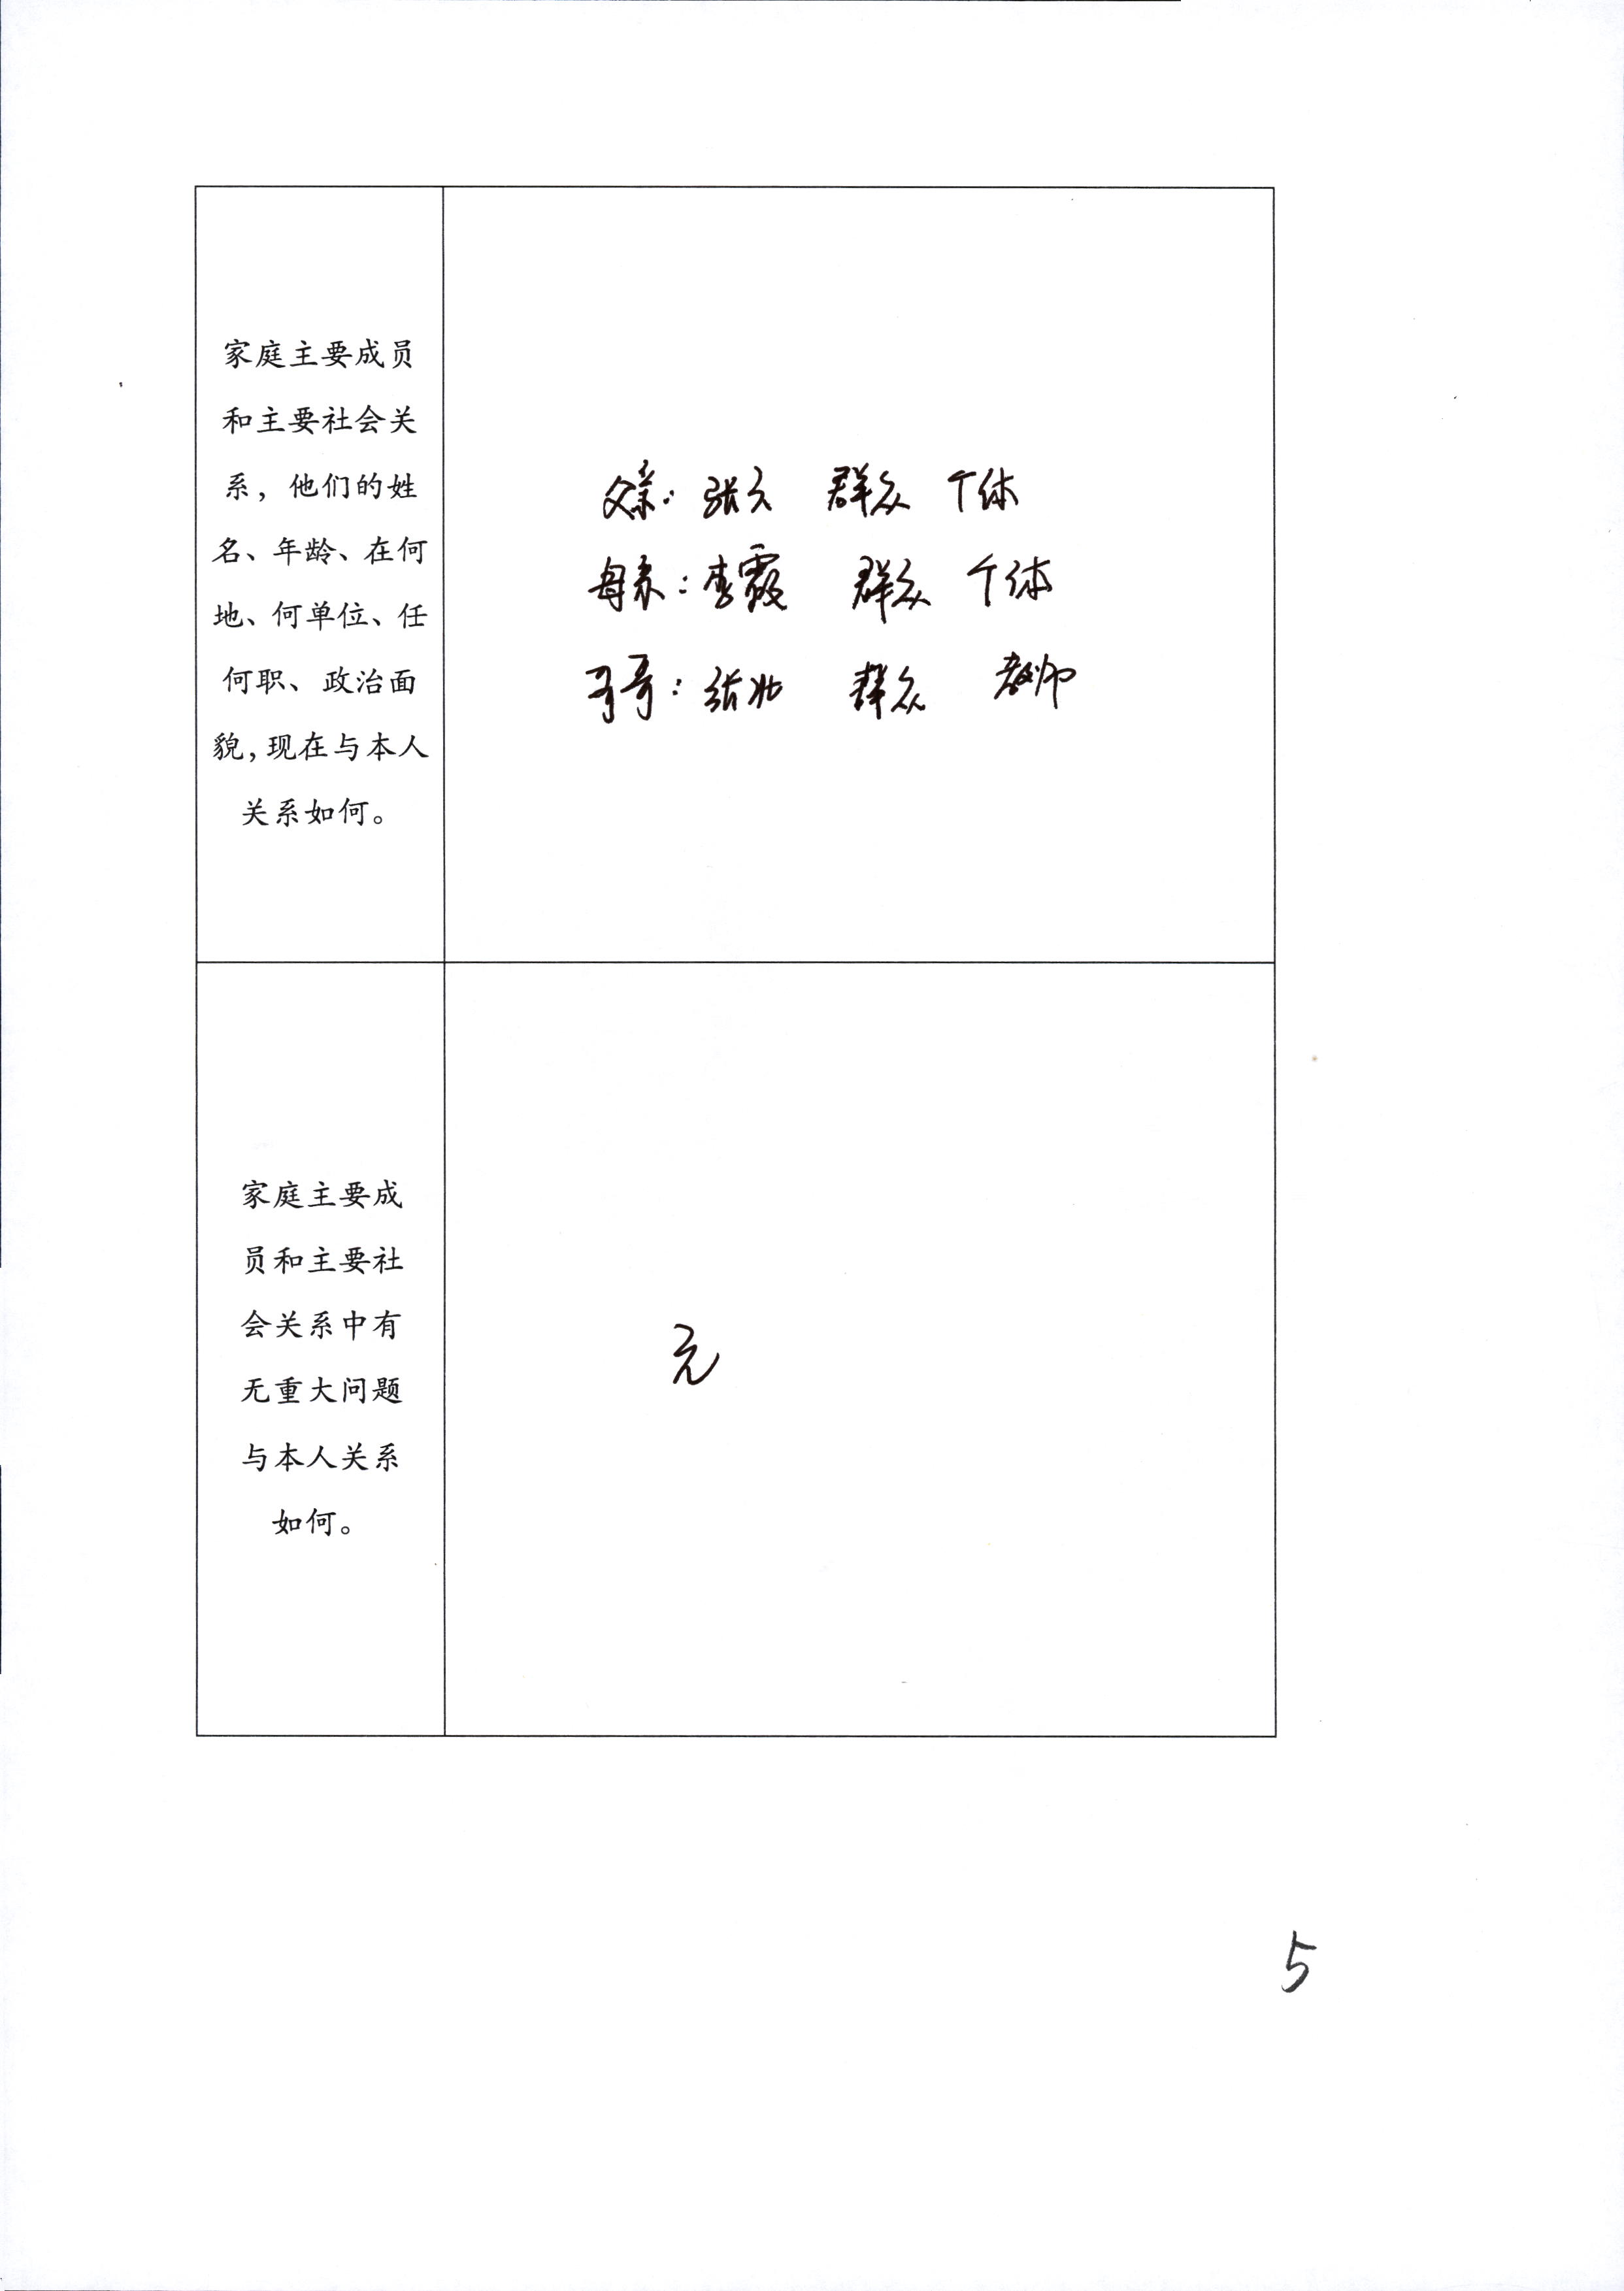 家庭主要成员
和主要社会关
系，他们的姓
名、年龄、在何
地、何单位、任
何职、政治面
貌，现在与本人
关系如何。
父亲：张 群众 个体
母亲：李霞 群众 个体
哥哥：张壮 群众 教师
家庭主要成
员和主要社
会关系中有
无重大问题
与本人关系
如何。
无
5